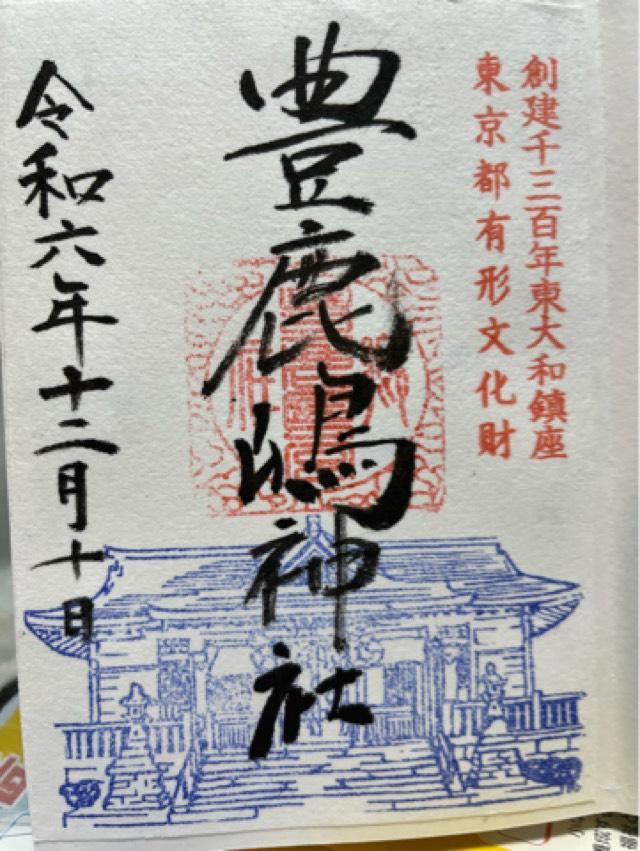 創建千三百年東大和鎮座
東京都有形文化財
豊鹿嶋神社
令和六年十二月十日